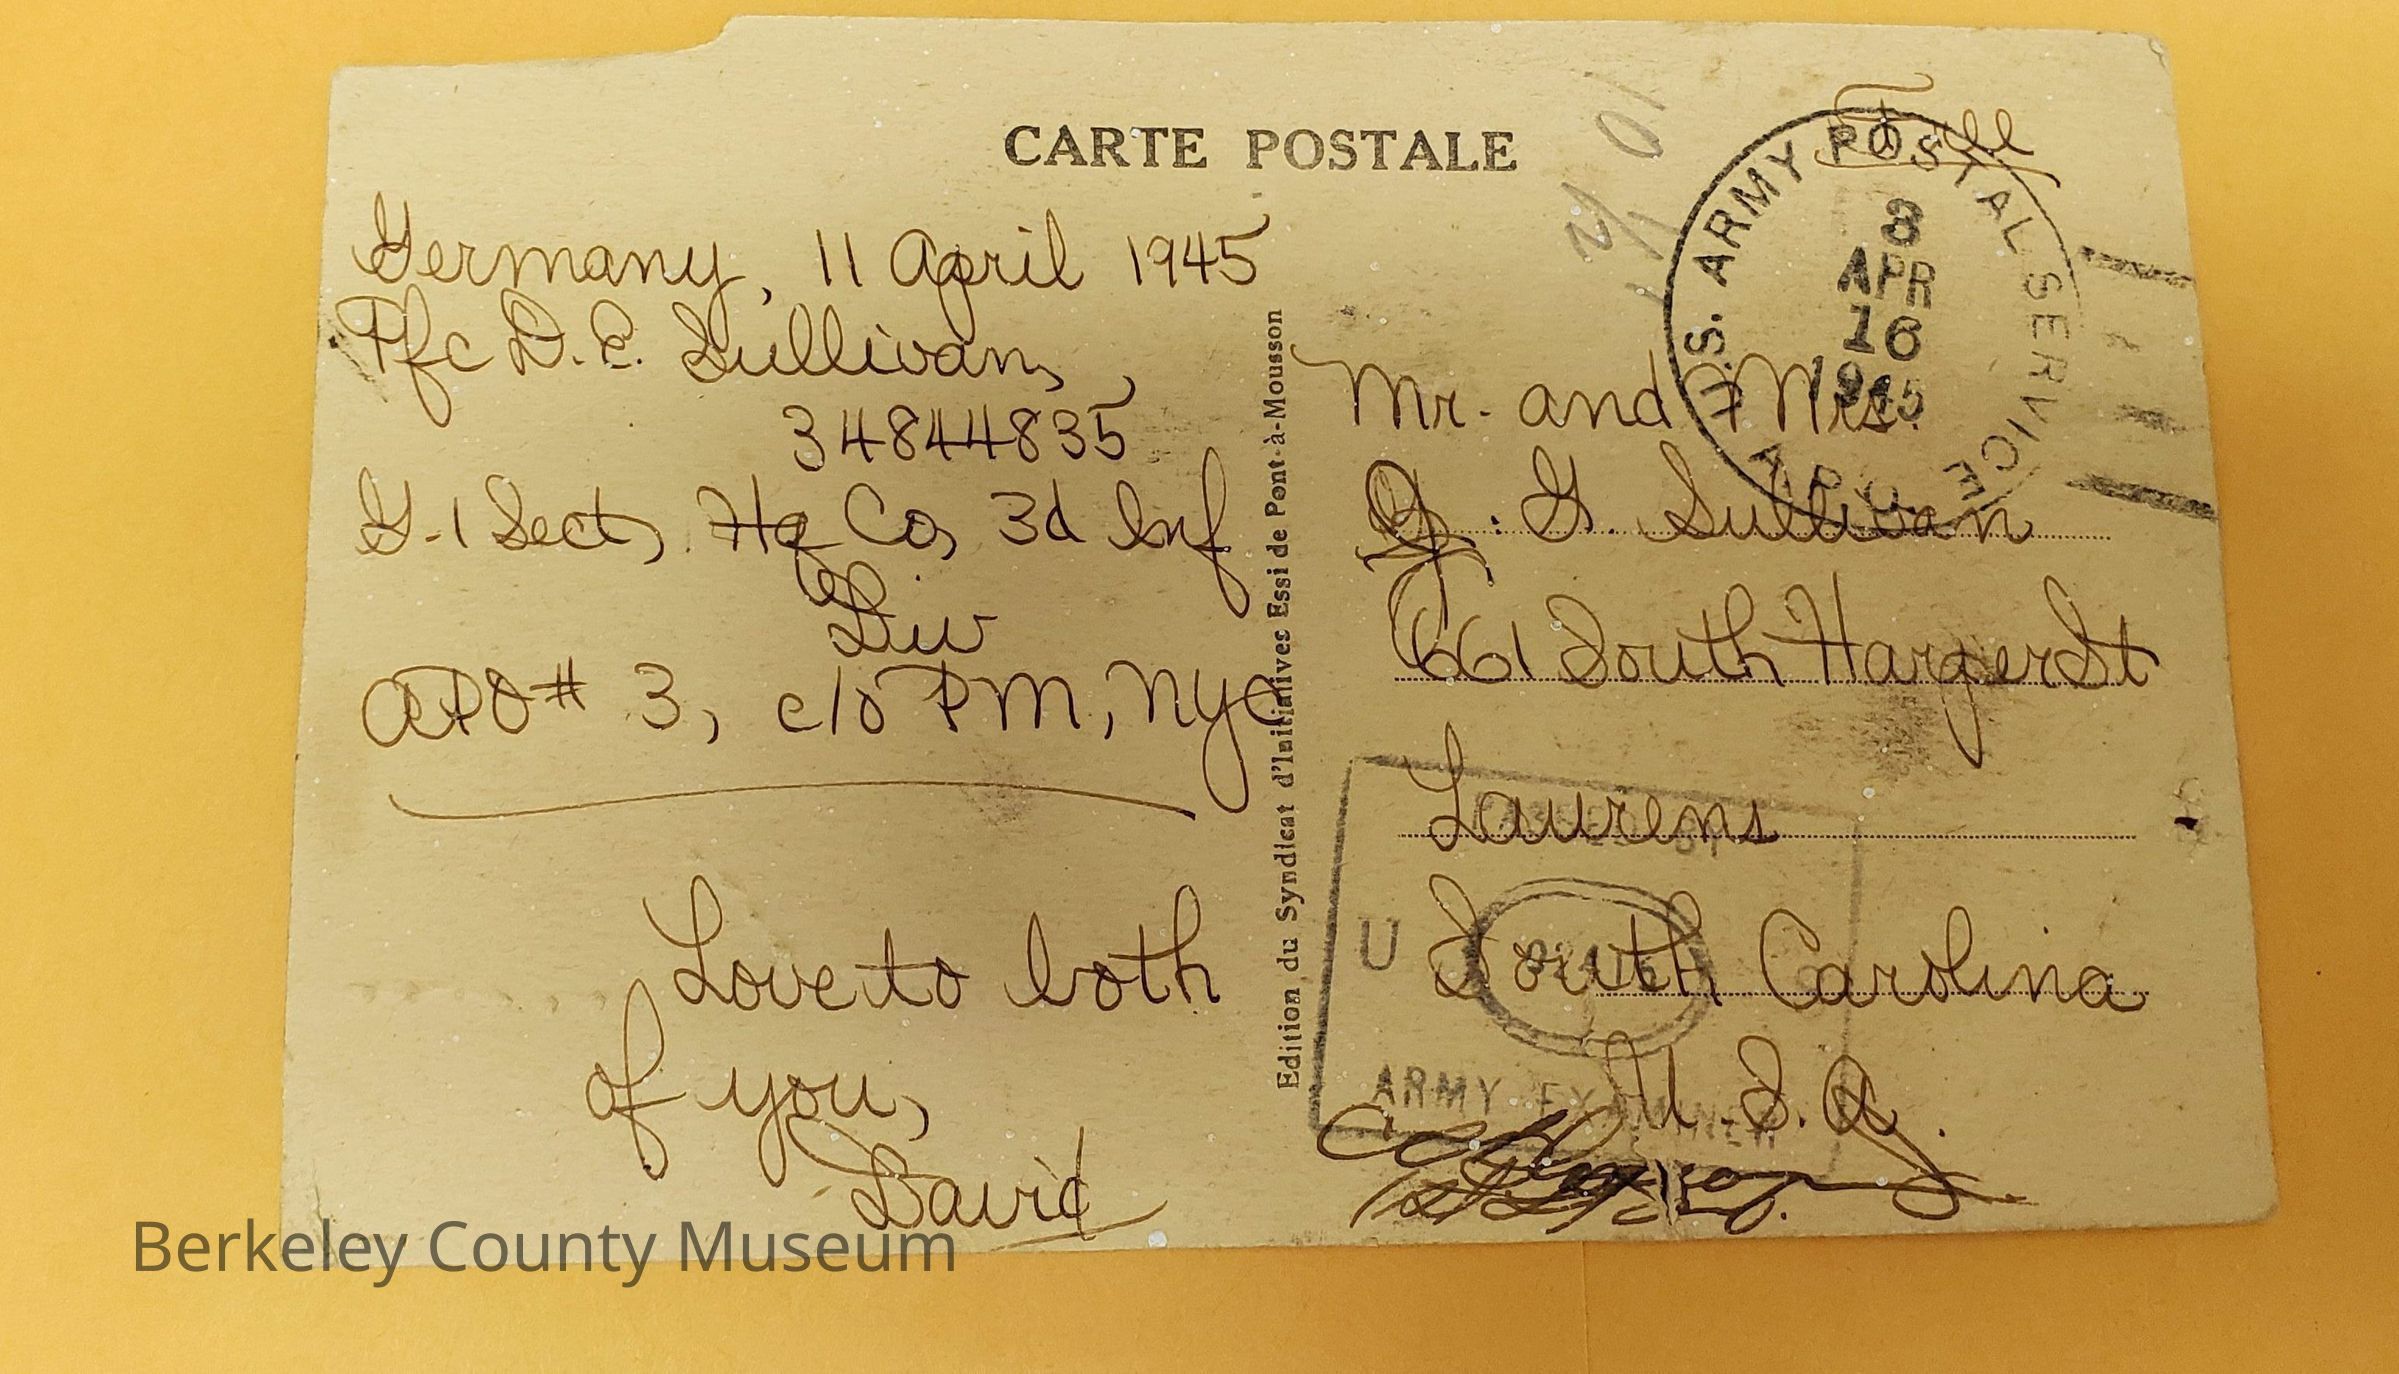 CARTE POSTALE
Free
U.S. ARMY POSTAL SERVICE
3
APR
16
1945
A.P.O.
Germany, 11 April 1945
Pfc D. E. Sullivan,
34844835
G-1 Sect, Hq Co, 3d Inf
Div
APO # 3, c/o PM, NYC
Love to both
of you,
David
Edition du Syndicat d'Initiatives Essi de Pont-à-Mousson
Mr. and Mrs.
G. Sullivan
661 South Harper St
Laurens
South Carolina
U.S.A.
BY
U S
ARMY EXAMINER
Berkeley County Museum